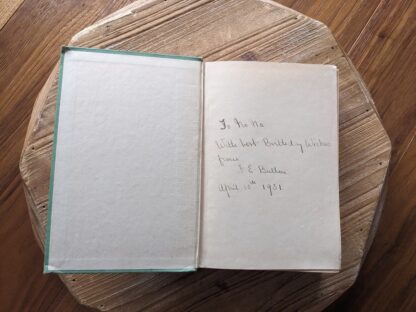 To No No
With best Birthday Wishes
from
J E Bullen
April 10th 1931